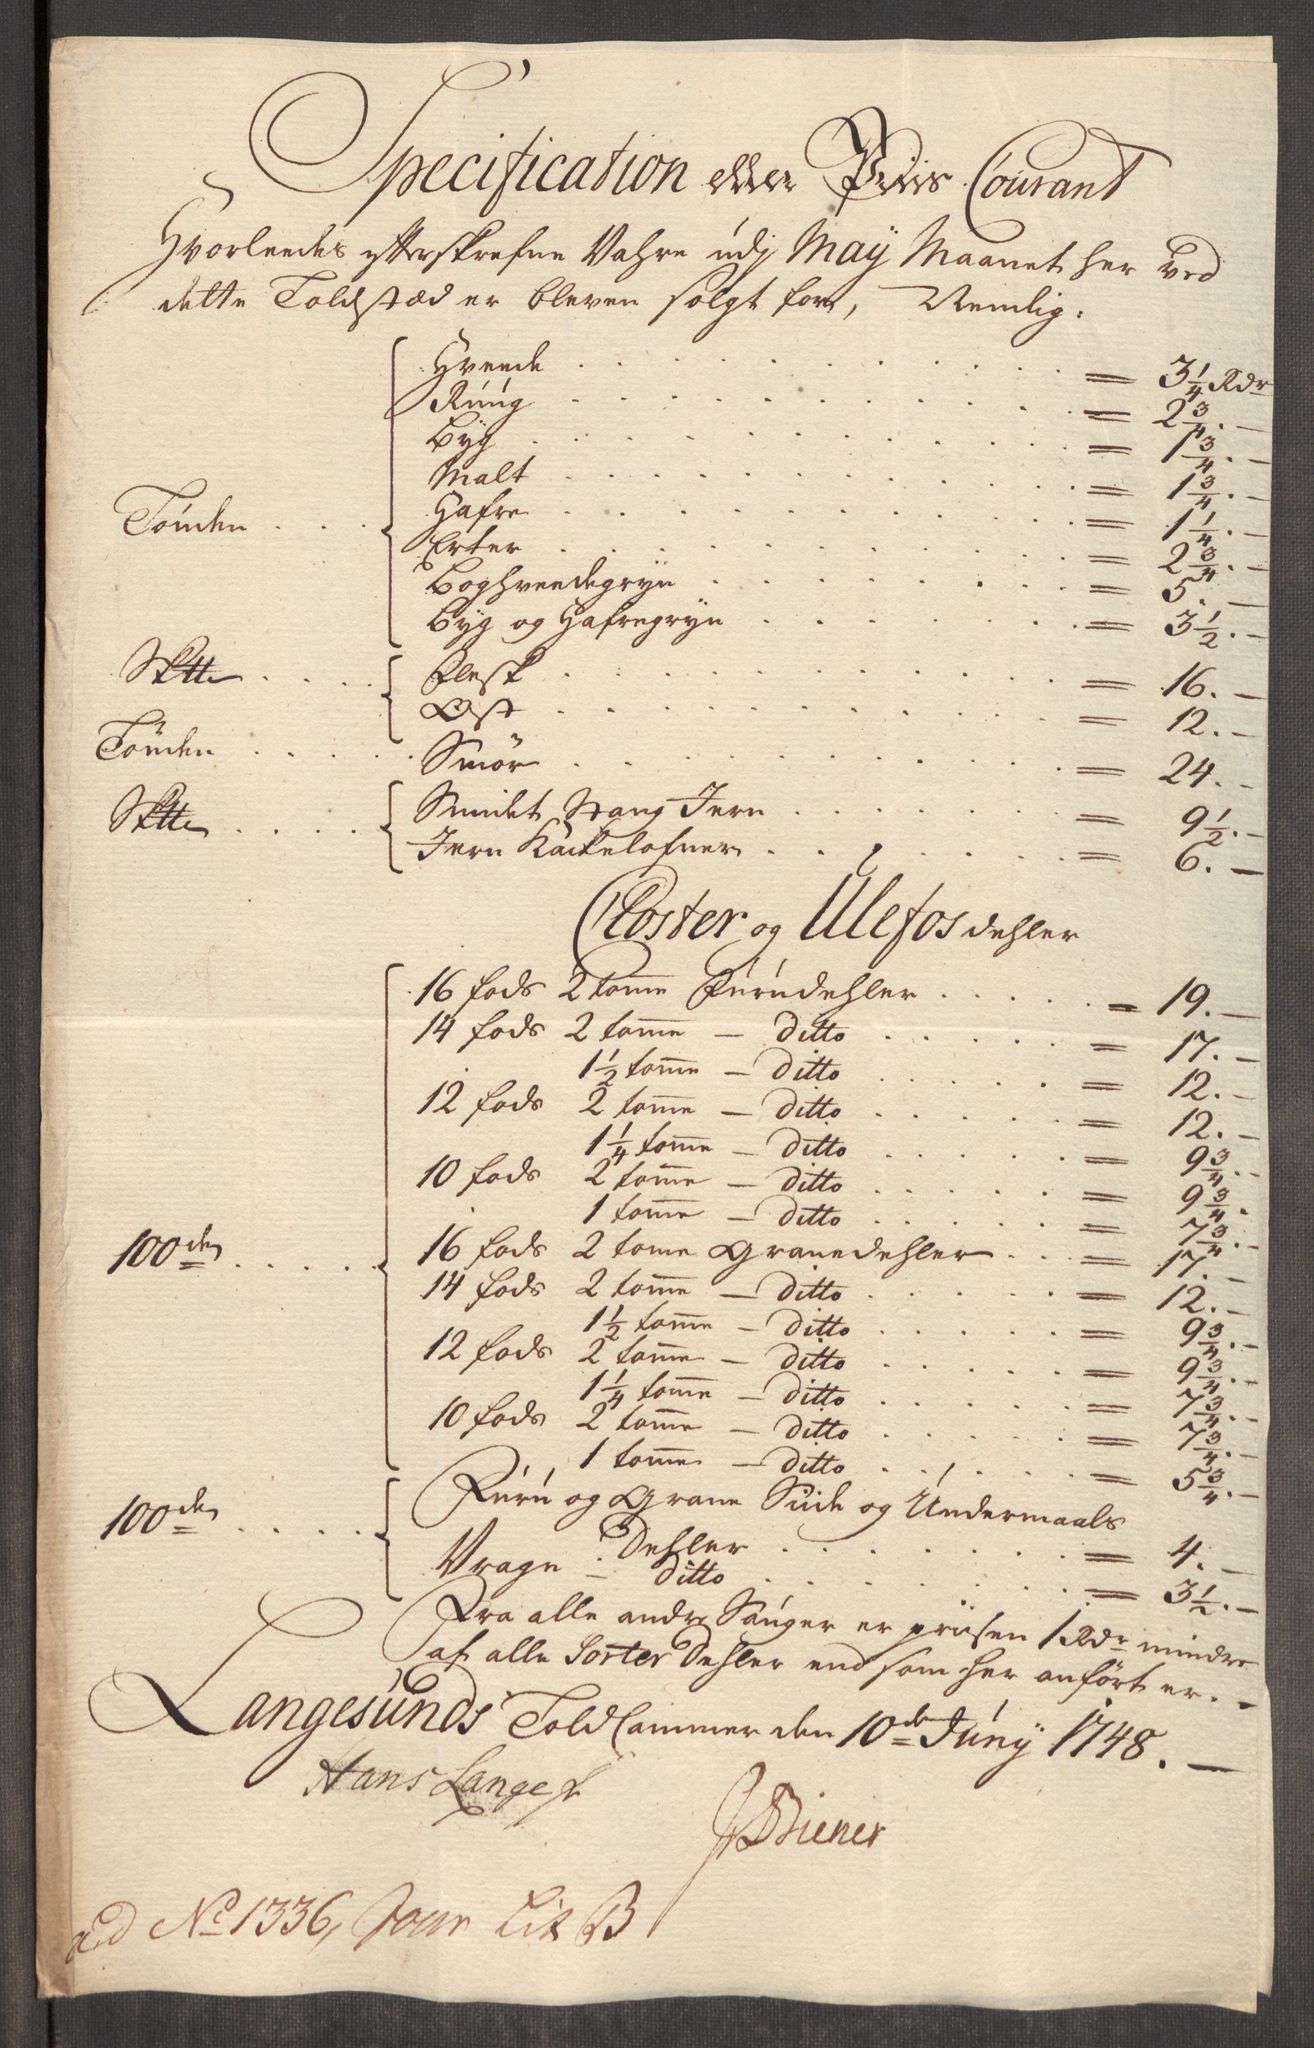 Specification eller Priis Courant
Hvorleedes efterskrefne Vahre udj Maÿ Maanet her ved
dette Toldstæd er bleven solgt for, Nemlig.
Hvede . . . = 3 1/4 Rdr
Rúúg . . . = 2 3/4. —
Bÿg . . . = 1 3/4. —
Malt . . . = 1 3/4. —
Tönden . . . Hafre . . . = 1 1/4. —
Erter . . . = 2 3/4. —
Boghveedegrÿn . . . = 5. —
Bÿg og Hafregrÿn . . . = 3 1/2. —
Sktt . . . Flesk . . . = 16. —
Ost . . . = 12. —
Tönden . . . Smör . . . = 24. —
Sktt . . . Smidet Stang Jern . . . = 9 1/2. —
Jern Kackelofner . . . = 6. —
Closter og Ulefos dehler
16 fods 2 tome Fúrúdehler . . . = 19. —
14 fods 2 tome — ditto . . . = 17. —
1 1/2 tome — ditto . . . = 12. —
12 fods 2 tome — ditto . . . = 12. —
1 1/4 tome — ditto . . . = 9 3/4. —
10 fods 2 tome — ditto . . . = 9 3/4.
1 tome — ditto . . . = 7 3/4. —
100de . . . 16 fods 2 tome Granedehler . . . = 17. —
14 fods 2 tome — ditto . . . = 12. —
1 1/2 tome — ditto . . . = 9 3/4. —
12 fods 2 tome — ditto . . . = 9 3/4. —
1 1/4 tome — ditto . . . = 7 3/4. —
10 fods 2 tome — ditto . . . = 7 3/4. —
1 tome — ditto . . . = 5 3/4. —
100de . . . Fúrú og Grane Súide og Úndermaals
Dehler . . . = 4. —
Vrage — ditto . . . = 3 1/2. —
Fra alle andre Sauger er priisen 1 Rdr mindre
af alle Sorter Dehler end som her anfört er. —
Langesúnds Told Cammer den 10de Júnÿ 1748. —
Hans Lange
Biener
ad No 1336, Jour Lit B